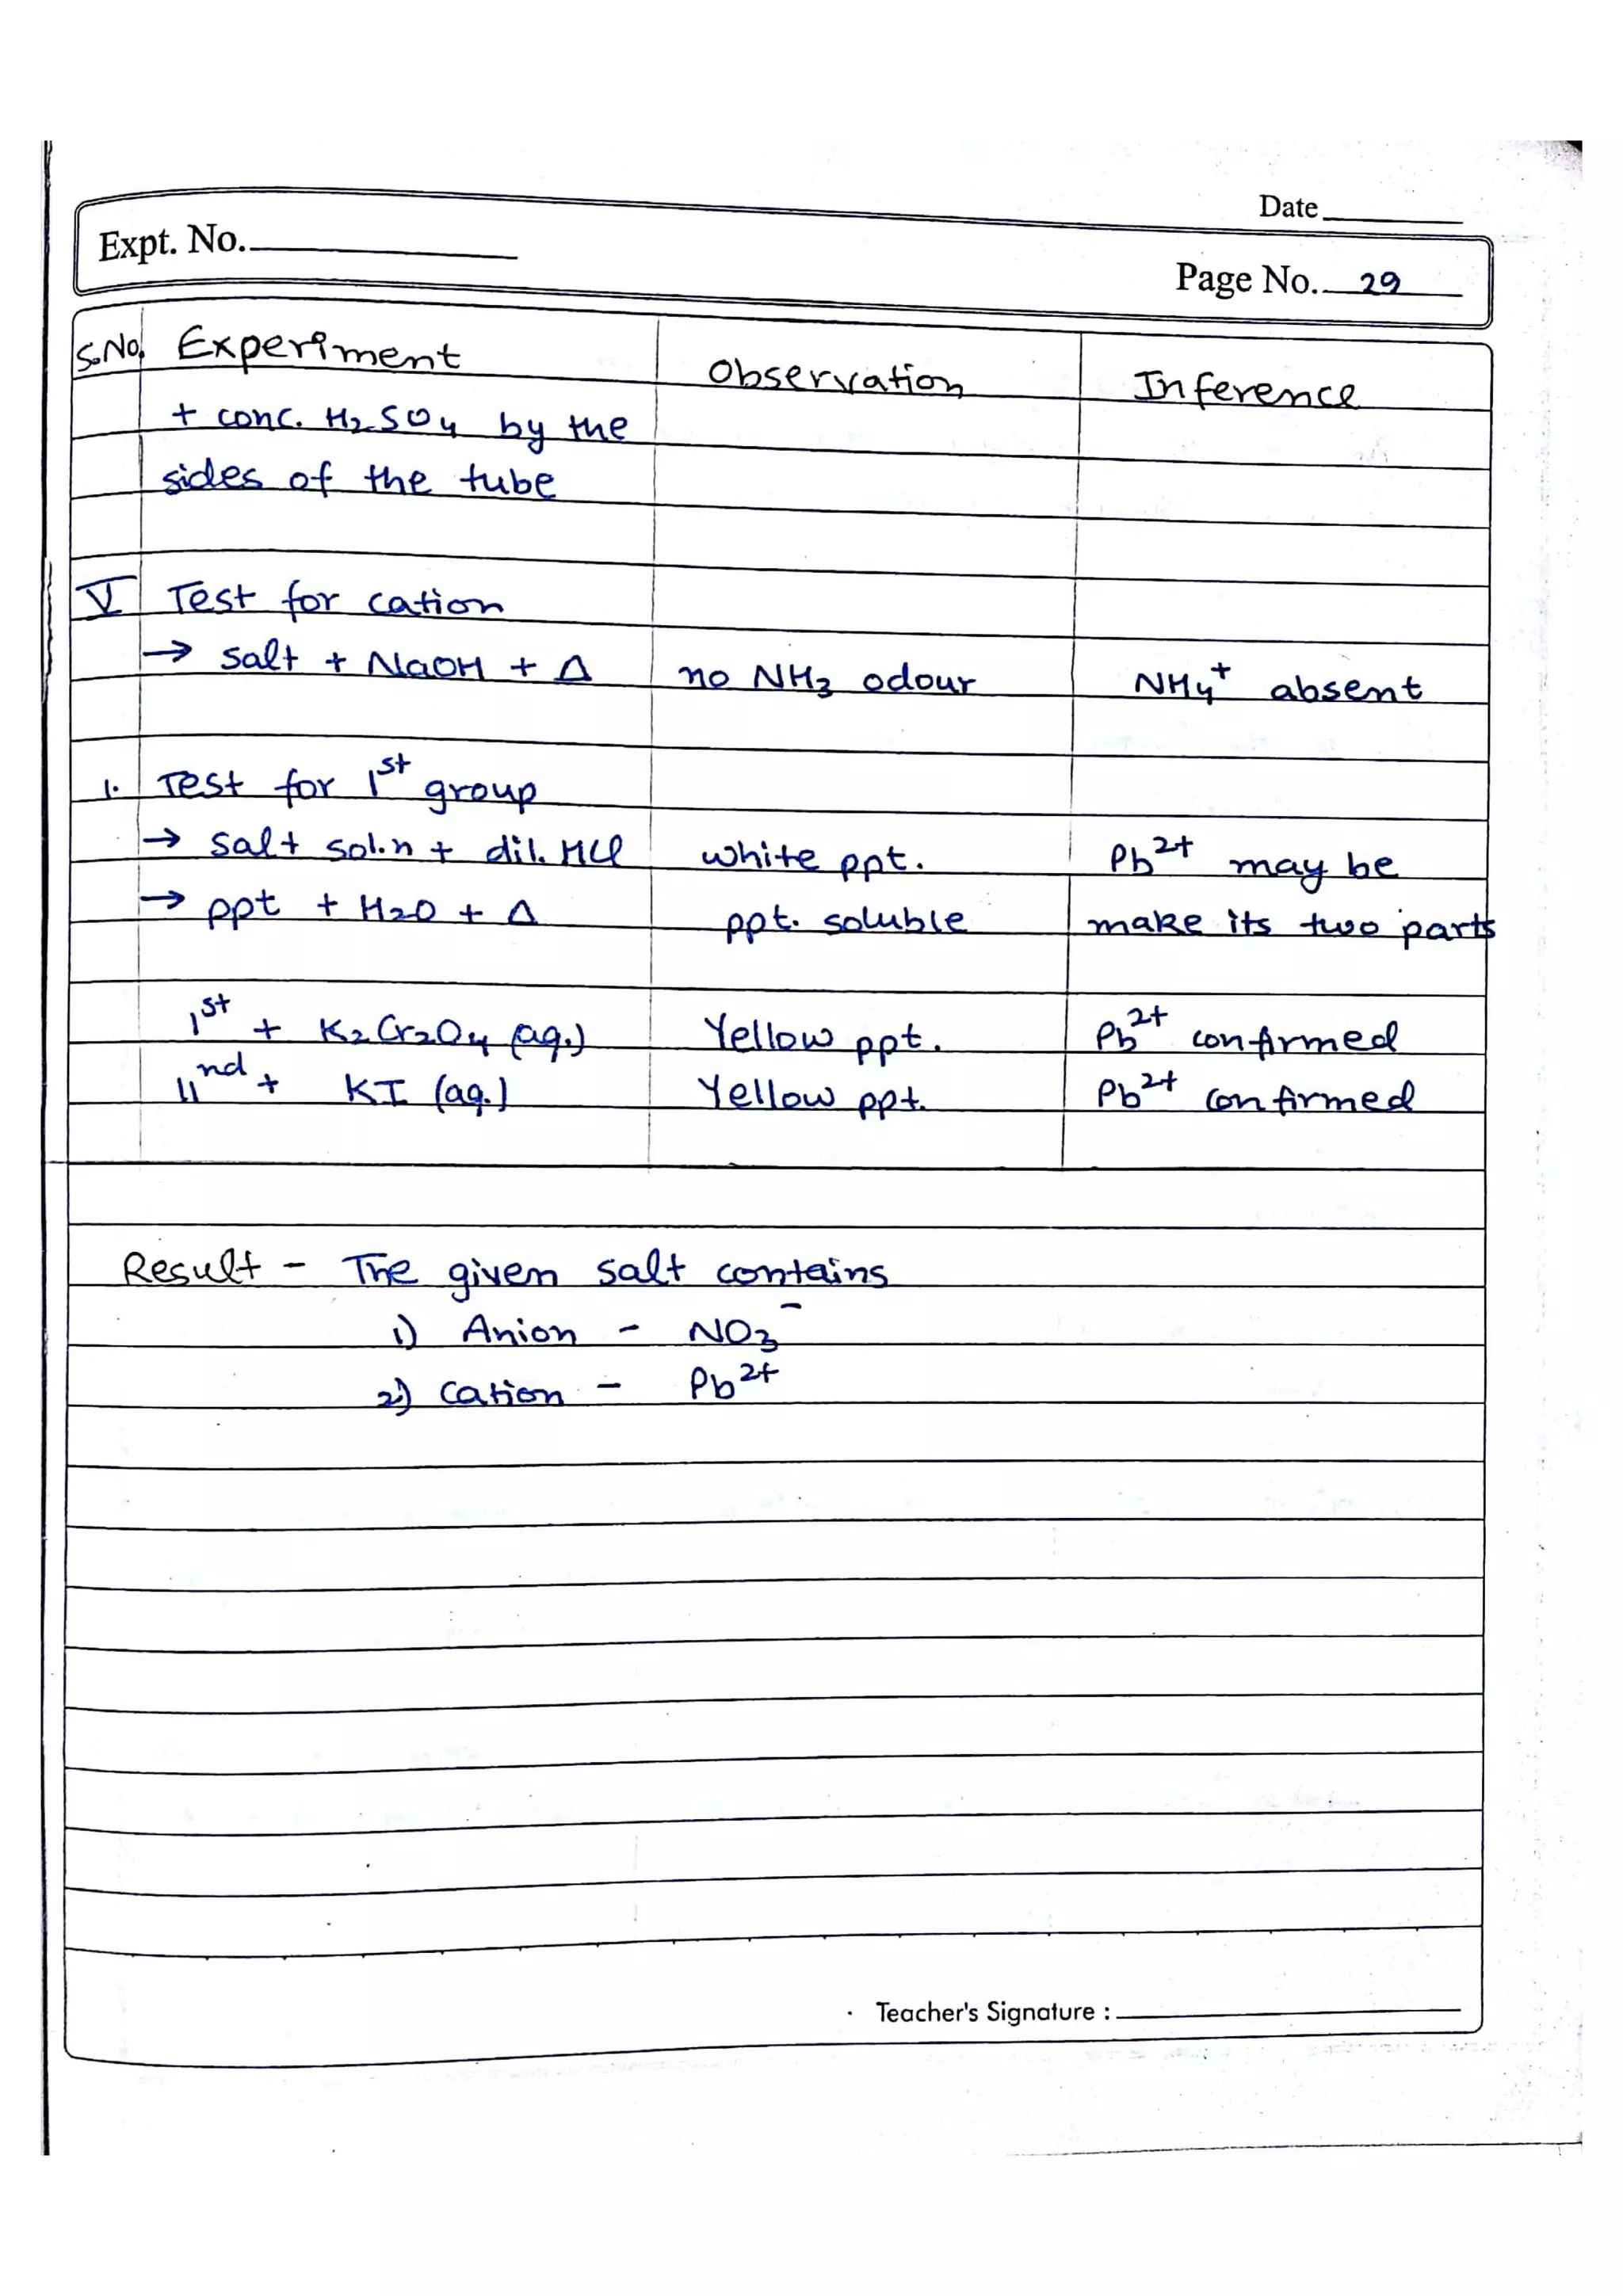 Date
Expt. No.
Page No. 29
S.No. Experiment Observation Inference
+ conc. H₂SO₄ by the
sides of the tube
V Test for cation
→ salt + NaOH + Δ no NH₃ odour NH₄⁺ absent
1. Test for 1st group
→ salt sol.n + dil. HCl white ppt. Pb²⁺ may be
→ ppt + H₂O + Δ ppt. soluble make its two parts
1st + K₂Cr₂O₄ (aq.) Yellow ppt. Pb²⁺ confirmed
IInd + KI (aq.) Yellow ppt. Pb²⁺ confirmed
Result - The given salt contains
1) Anion - NO₃⁻
2) Cation - Pb²⁺
Teacher's Signature :